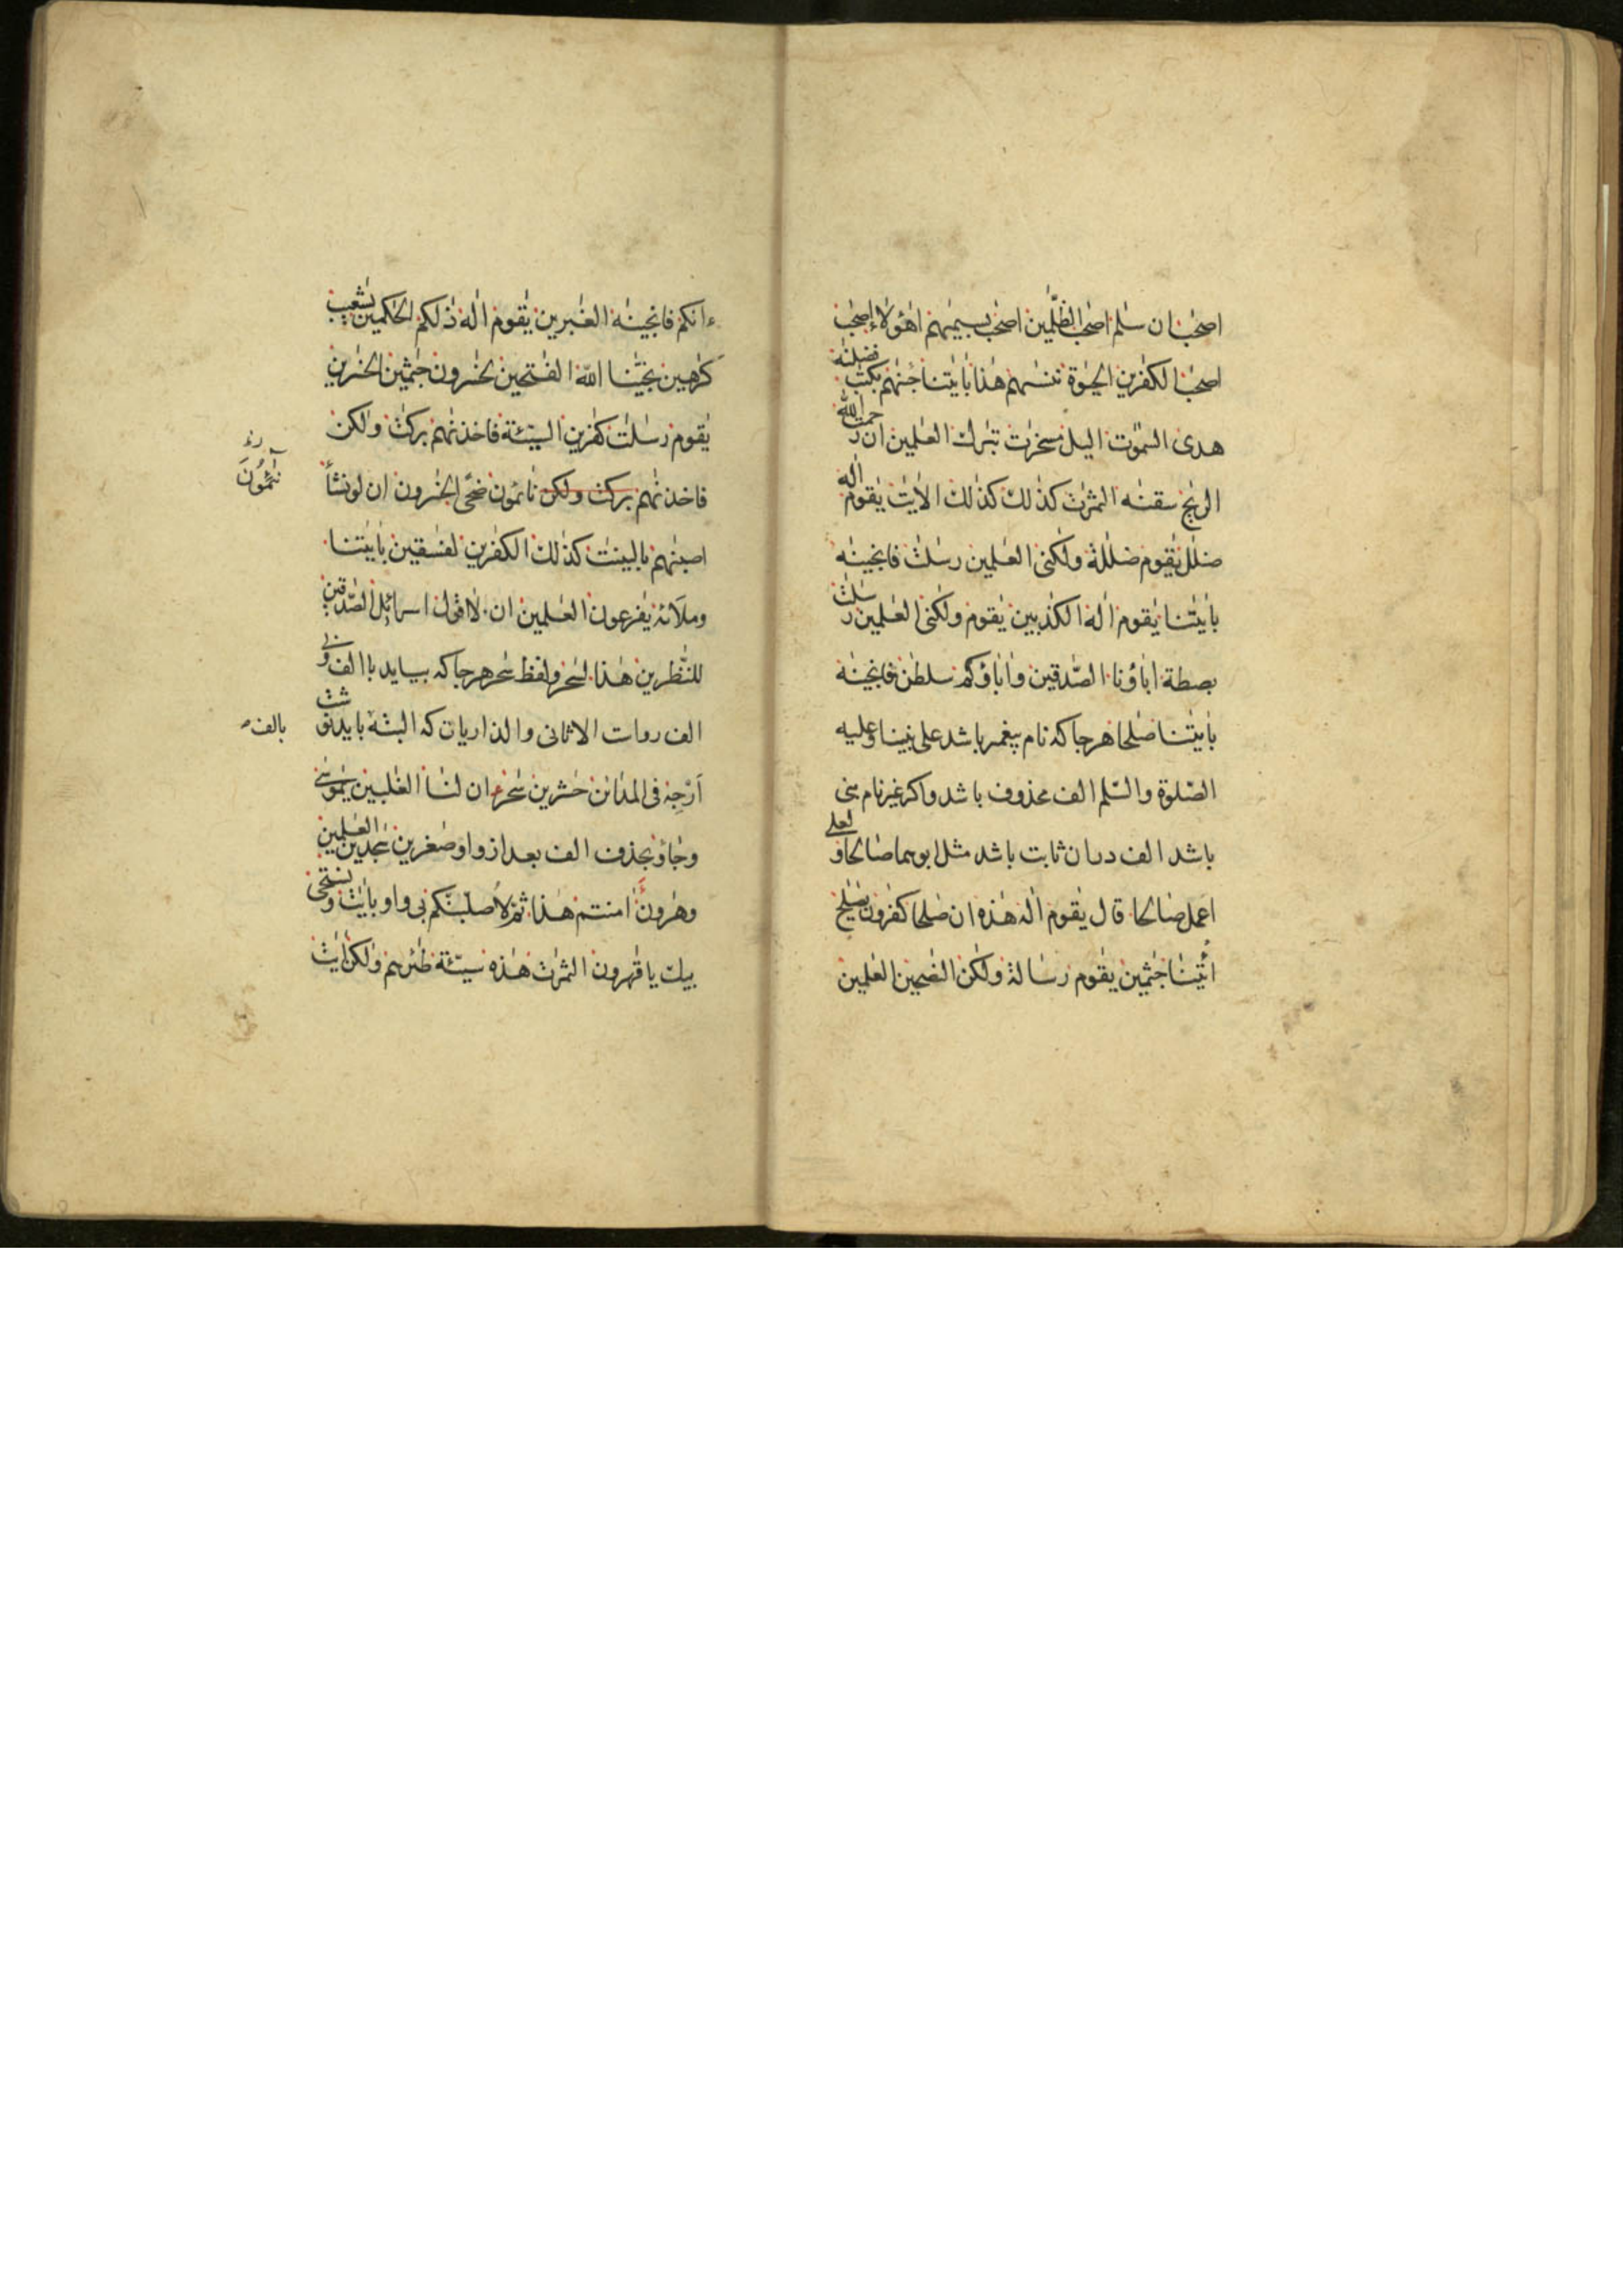 اصحٰب ان سلٰم اصحٰب الظّٰلمين اصحٰب بسيمٰهم اهٰؤلاء اصحٰب
اصحٰب الكٰفرين الحيٰوة ننسٰهم هٰذا بايٰتنا جئنٰهم بكتٰب فصلنٰه
هدى السّمٰوٰت اليل مسخرٰت تبٰرك العٰلمين ان رحمت اللّه
الريٰح سقنٰه الثمرٰت كذٰلك كذٰلك الايٰت يٰقوم الٰه
ضلٰل يٰقوم ضلٰلة ولٰكنى العٰلمين رسٰلٰت فانجينٰه
بايٰتنا يٰقوم الٰه الكٰذبين يٰقوم ولٰكنى العٰلمين رسٰلٰت
بصطة اباؤنا الصّٰدقين واٰباؤكم سلطٰن فانجينٰه
بايٰتنا صٰلحا هرجاكه نام پيغمبر باشد على نبينا وعليه
الصّلوة والسّلم الف محذوف باشد واكر غير نام نبى
باشد الف دران ثابت باشد مثل ابوهما صالحا ولعلى
اعمل صالحا قال يٰقوم الٰه هٰذه ان صٰلحا كٰفرون يٰصٰلح
ائتنا جٰثمين يٰقوم رسالة ولٰكن النٰصحين العٰلمين
ءانكم فانجينٰه الغٰبرين يٰقوم الٰه ذٰلكم الحٰكمين يٰشعيب
كٰرهين نجّٰنا اللّه الفٰتحين لخٰسرون جٰثمين الخٰسرين
يٰقوم رسٰلٰت كٰفرين السيّئة فاخذنٰهم بركٰت ولٰكن
فاخذنٰهم بركٰت ولكن نائمون ضحًى الخٰسرون ان لو نشأ
نَآئِمُوْنَ
اصبنٰهم بالبينٰت كذٰلك الكٰفرين لفٰسقين بايٰتنا
وملَائه يٰفرعون العٰلمين ان لا اقول اسرائل الصّٰدقين
للنّٰظرين هٰذا لسٰحر ولفظ سٰحر هرجاكه بيايد با الف و بى
الف روات الا ثانى والذاريات كه البته بايد نوشت
بالف
اَرْجِهْ فى المدائن حٰشرين سٰحر ان لنا الغٰلبين يٰموسٰى
وجاؤ بحذف الف بعد از واو صٰغرين سٰجدين العٰلمين
وهٰرون ءامنتم هٰذا ثم لاصلّبنّكم بى واو بايٰت ونستحى
بيك يا قٰهرون الثمرٰت هٰذه سيّئة طٰئرهم ولٰكن ايٰت